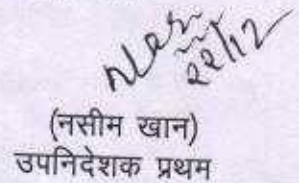 २२/१२
(नसीम खान)
उपनिदेशक प्रथम